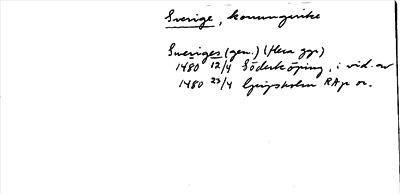 Sverige, konungarike
Sveriges (gen.) (flera ggr)
1480 12/4 Söderköping, i vid. av
1480 23/4 RAp or.